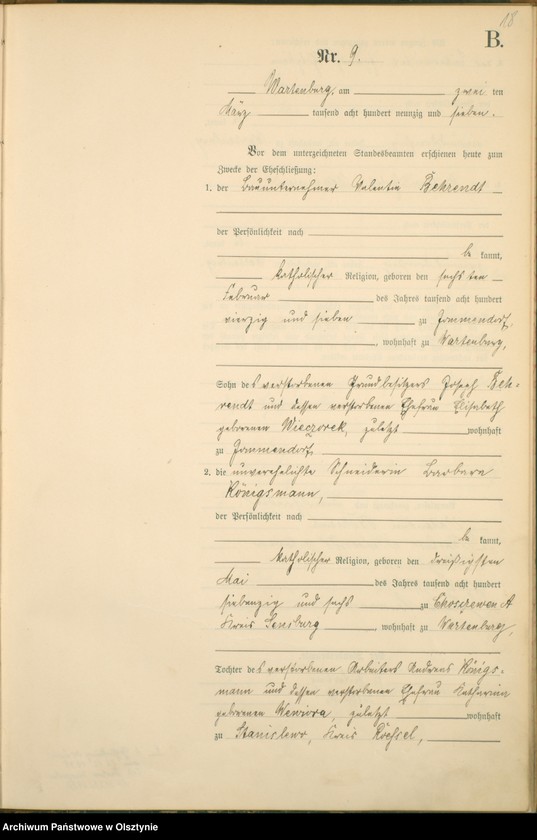 18
B.
Nr. 9.
Wartenburg, am zwei ten
März tausend acht hundert neunzig und sieben.
Vor dem unterzeichneten Standesbeamten erschienen heute zum
Zwecke der Eheschließung:
1. der Bauunternehmer Valentin Behrendt
der Persönlichkeit nach
be kannt,
katholischer Religion, geboren den sechs ten
Februar des Jahres tausend acht hundert
vierzig und sieben zu Jommendorf,
, wohnhaft zu Wartenburg,
Sohn des verstorbenen Grundbesitzers Joseph Beh-
rendt und dessen verstorbenen Ehefrau Elisabeth
geborenen Wieczorek, zuletzt wohnhaft
zu Jommendorf,
2. die unverehelichte Schneiderin Barbara
Königsmann,
der Persönlichkeit nach
be kannt,
katholischer Religion, geboren den dreißigsten
Mai des Jahres tausend acht hundert
siebenzig und sechs zu Choszewen A
Kreis Sensburg, wohnhaft zu Wartenburg,
Tochter des verstorbenen Arbeiters Andreas Königs-
mann und dessen verstorbenen Ehefrau Katharina
geborenen zuletzt wohnhaft
zu Stanislewo, Kreis Roessel,
Archiwum Państwowe w Olsztynie